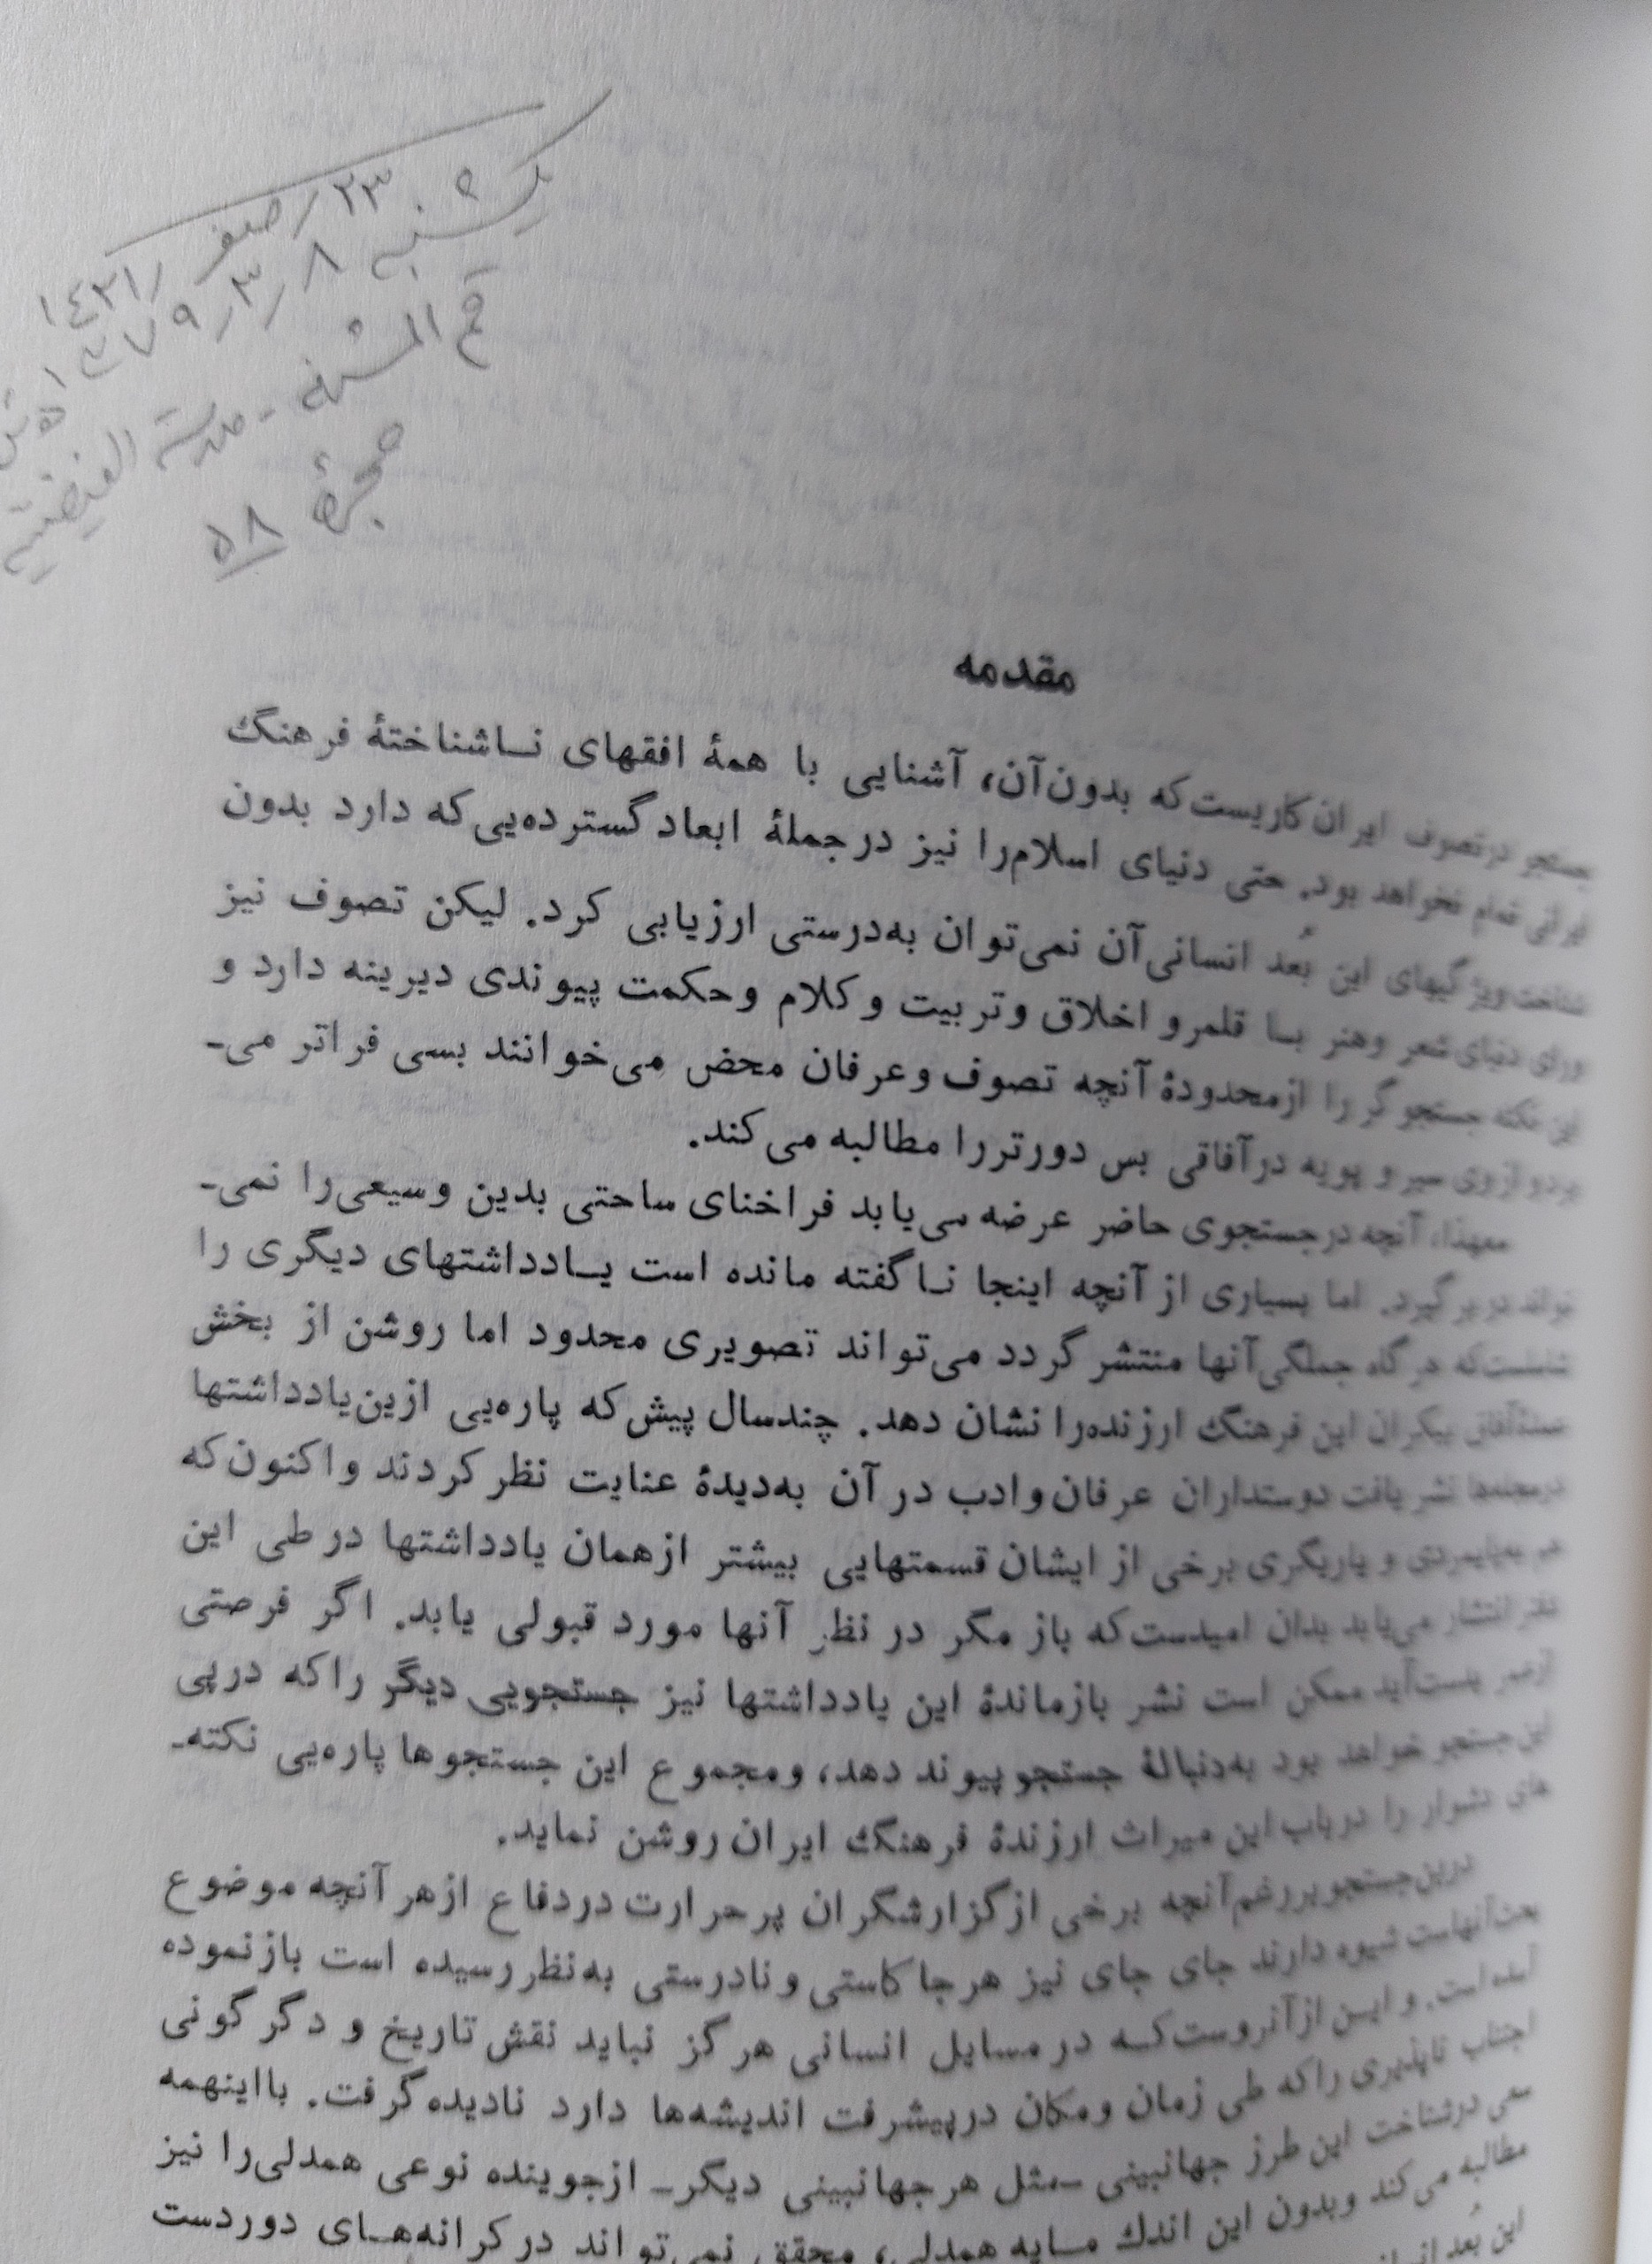 یکشنبه ۸ / ۳ / ۱۳۷۹ ه‍ ش
۲۳ / صفر / ۱٤۲۱
قم المشرفة - مدرسة الفیضیة
حجرهٔ ۵۸
مقدمه
جستجو در تصوف ایران کاریست که بدون آن، آشنایی با همهٔ افقهای ناشناختهٔ فرهنگ
ایرانی تمام نخواهد بود. حتی دنیای اسلام را نیز در جملهٔ ابعاد گسترده‌یی که دارد بدون
شناخت ویژگیهای این بُعد انسانی آن نمی‌توان به‌درستی ارزیابی کرد. لیکن تصوف نیز
ورای دنیای شعر و هنر با قلمرو اخلاق و تربیت و کلام و حکمت پیوندی دیرینه دارد و
این نکته جستجوگر را از محدودهٔ آنچه تصوف و عرفان محض می‌خوانند بسی فراتر می‌ـ
برد و ازوی سیر و پویه در آفاقی بس دورتر را مطالبه می‌کند.
معهذا، آنچه در جستجوی حاضر عرضه می‌یابد فراخنای ساحتی بدین وسیعی را نمی‌ـ
تواند در بر گیرد. اما بسیاری از آنچه اینجا ناگفته مانده است یادداشتهای دیگری را
شاملست که هر گاه جملگی آنها منتشر گردد می‌تواند تصویری محدود اما روشن از بخش
عمدهٔ آفاق بیکران این فرهنگ ارزنده را نشان دهد. چند سال پیش که پاره‌یی ازین یادداشتها
در مجله‌ها نشر یافت دوستداران عرفان و ادب در آن به‌دیدهٔ عنایت نظر کردند و اکنون که
هم به‌پایمردی و یاریگری برخی از ایشان قسمتهایی بیشتر از همان یادداشتها در طی این
دفتر انتشار می‌یابد بدان امیدست که باز مگر در نظر آنها مورد قبولی یابد. اگر فرصتی
از عمر بدست آید ممکن است نشر بازماندهٔ این یادداشتها نیز جستجویی دیگر را که در پی
این جستجو خواهد بود به‌دنبالهٔ جستجو پیوند دهد، و مجموع این جستجوها پاره‌یی نکته‌ـ
های دشوار را در باب این میراث ارزندهٔ فرهنگ ایران روشن نماید.
درین جستجو بر رغم آنچه برخی از گزارشگران پر حرارت در دفاع از هر آنچه موضوع
بحث آنهاست شیوه دارند جای جای نیز هر جا کاستی و نادرستی به‌نظر رسیده است باز نموده
آمده است. و این از آنروست که در مسایل انسانی هرگز نباید نقش تاریخ و دگرگونی
اجتناب ناپذیری را که طی زمان و مکان در پیشرفت اندیشه‌ها دارد نادیده گرفت. با اینهمه
سعی در شناخت این طرز جهانبینی ـ مثل هر جهانبینی دیگر ـ از جوینده نوعی همدلی را نیز
مطالبه می‌کند و بدون این اندک مایه همدلی، محقق نمی‌تواند در کرانه‌های دوردست
این بُعد